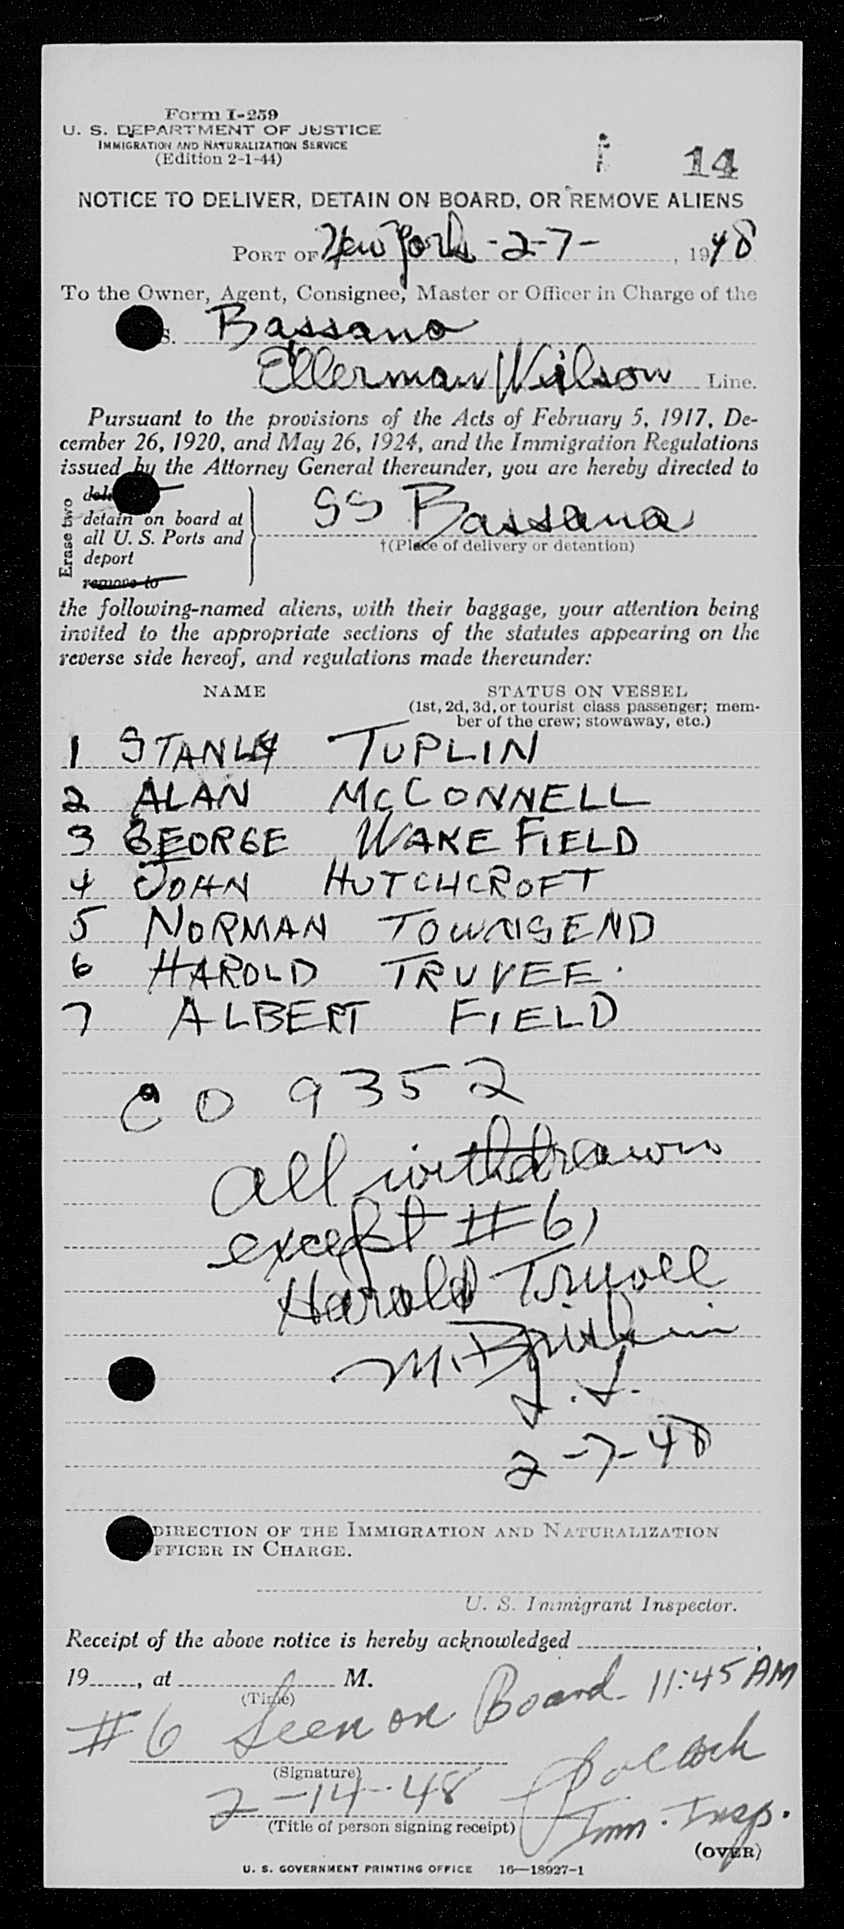 Form I-259
U. S. DEPARTMENT OF JUSTICE
IMMIGRATION AND NATURALIZATION SERVICE
(Edition 2-1-44)
14
NOTICE TO DELIVER, DETAIN ON BOARD, OR REMOVE ALIENS
PORT OF New York - 2-7- , 1948
To the Owner, Agent, Consignee, Master or Officer in Charge of the
S. Bassano
Ellerman Wilson Line.
Pursuant to the provisions of the Acts of February 5, 1917, De-
cember 26, 1920, and May 26, 1924, and the Immigration Regulations
issued by the Attorney General thereunder, you are hereby directed to
Erase two
detain on board at
all U. S. Ports and
deport
remove to
SS Bassana
†(Place of delivery or detention)
the following-named aliens, with their baggage, your attention being
invited to the appropriate sections of the statutes appearing on the
reverse side hereof, and regulations made thereunder:
NAME STATUS ON VESSEL
(1st, 2d, 3d, or tourist class passenger; mem-
ber of the crew; stowaway, etc.)
1 STANLY TUPLIN
2 ALAN McCONNELL
3 GEORGE WAKE FIELD
4 JOHN HUTCHCROFT
5 NORMAN TOWNSEND
6 HAROLD TRUVEE.
7 ALBERT FIELD
CO 9352
all withdrawn
except #6,
Harold Truvee
M.
2-7-48
DIRECTION OF THE IMMIGRATION AND NATURALIZATION
OFFICER IN CHARGE.
U. S. Immigrant Inspector.
Receipt of the above notice is hereby acknowledged ,
19 , at M.
(Time)
#6 Seen on Board 11:45 AM
(Signature)
2-14-48 Pocock
Imm. Insp.
(Title of person signing receipt)
(OVER)
U. S. GOVERNMENT PRINTING OFFICE 16—18927-1